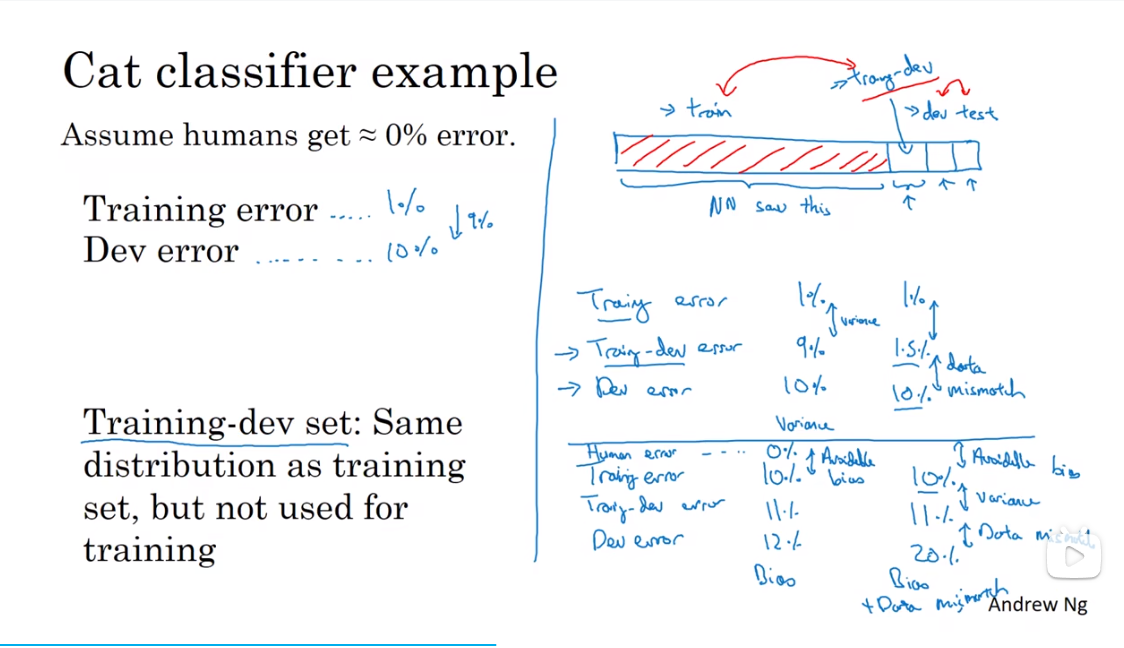 Cat classifier example
Assume humans get ≈ 0% error.
Training error ..... 1%
↓ 9%
Dev error ......... 10%
Training-dev set: Same
distribution as training
set, but not used for
training
→ train
→ dev test
NN saw this
error 1% 1%
variance
error 9% 1.5%
data
→ Dev error 10% 10% mismatch
Variance
Human error --- 0% Avoidable Avoidable bias
Training error 10% bias 10%
Variance
error 11% 11%
Data
Dev error 12% 20%
Bias Bias
+ Data mismatch
Andrew Ng